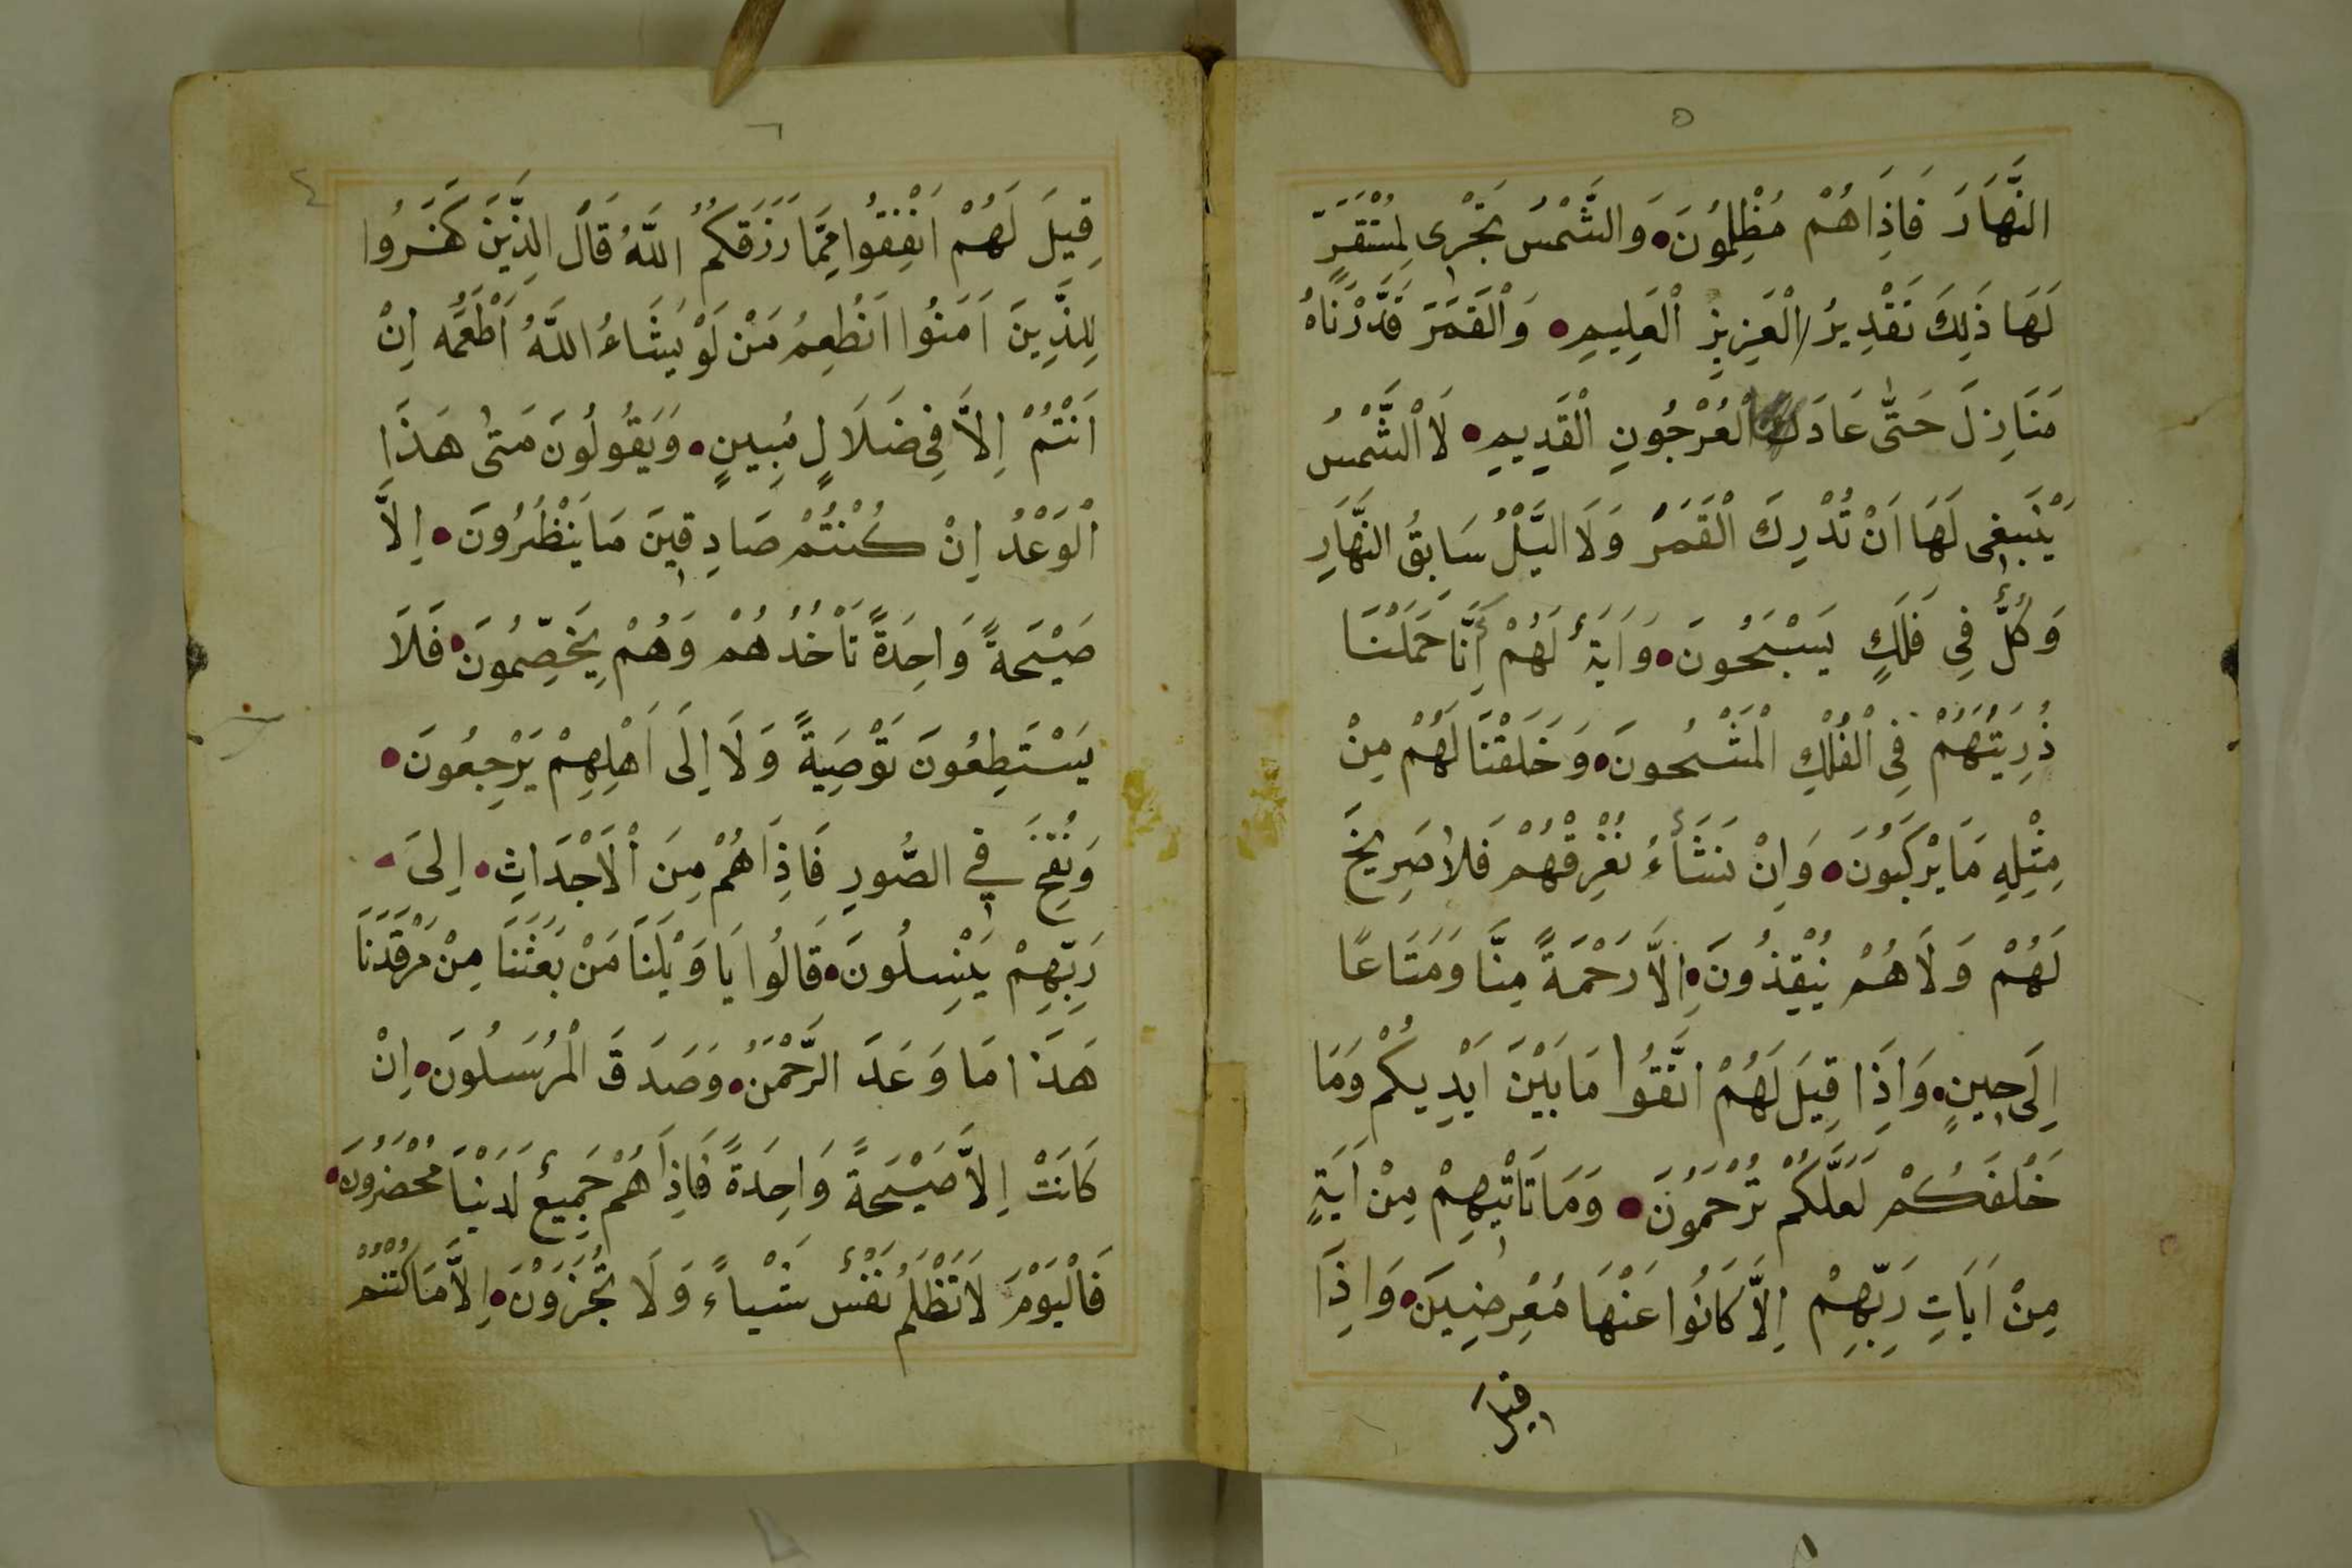 ٥
النَّهَارَ فَاِذَا هُمْ مُظْلِمُونَ وَالشَّمْسُ تَجْرِى لِمُسْتَقَرٍّ
لَهَا ذَلِكَ تَقْدِيرُ الْعَزِيزِ الْعَلِيمِ وَالْقَمَرَ قَدَّرْنَاهُ
مَنَازِلَ حَتَّى عَادَ كَالْعُرْجُونِ الْقَدِيمِ لَا الشَّمْسُ
يَنْبَغِى لَهَا اَنْ تُدْرِكَ الْقَمَرَ وَلَا الَّيْلُ سَابِقُ النَّهَارِ
وَكُلٌّ فِى فَلَكٍ يَسْبَحُونَ وَاَيَةٌ لَهُمْ اَنَّا حَمَلْنَا
ذُرِيَّتَهُمْ فِى الْفُلْكِ الْمَشْحُونَ وَخَلَقْنَا لَهُمْ مِنْ
مِثْلِهِ مَا يَرْكَبُونَ وَاِنْ نَشَأْءُ نُغْرِقْهُمْ فَلَا صَرِيخَ
لَهُمْ وَلَا هُمْ يُنْقِذُونَ اِلَّا رَحْمَةً مِنَّا وَمَتَاعًا
اِلَى حِينٍ وَاِذَا قِيلَ لَهُمُ اتَّقُوا مَا بَيْنَ اَيْدِيكُمْ وَمَا
خَلْفَكُمْ لَعَلَّكُمْ تُرْحَمُونَ وَمَا تَاْتِيهِمْ مِنْ اَيَةٍ
مِنْ اَيَاتِ رَبِّهِمْ اِلَّا كَانُوا عَنْهَا مُعْرِضِينَ وَاِذَا
قيل
٦
٤
قِيلَ لَهُمْ اَنْفِقُوا مِمَّا رَزَقَكُمُ اللَّهُ قَالَ الَّذِينَ كَفَرُوا
لِلَّذِينَ اَمَنُوا اَنُطْعِمُ مَنْ لَوْ يَشَاءُ اللَّهُ اَطْعَمَهُ اِنْ
اَنْتُمْ اِلَّا فِى ضَلَالٍ مُبِينٍ وَيَقُولُونَ مَتَى هَذَا
الْوَعْدُ اِنْ كُنْتُمْ صَادِقِينَ مَا يَنْظُرُونَ اِلَّا
صَيْحَةً وَاحِدَةً تَاْخُذُهُمْ وَهُمْ يَخِصِّمُونَ فَلَا
يَسْتَطِعُونَ تَوْصِيَةً وَلَا اِلَى اَهْلِهِمْ يَرْجِعُونَ
وَنُفِخَ فِي الصُّورِ فَاِذَا هُمْ مِنَ الْاَجْدَاثِ اِلىَ
رَبِّهِمْ يَنْسِلُونَ قَالُوا يَا وَيْلَنَا مَنْ بَعَثَنَا مِنْ مَرْقَدِنَا
هَذَا مَا وَعَدَ الرَّحْمَنُ وَصَدَقَ الْمُرْسَلُونَ اِنْ
كَانَتْ اِلَّا صَيْحَةً وَاحِدَةً فَاِذَا هُمْ جَمِيعٌ لَدَيْنَا مُحْضَرُونَ
فَالْيَوْمَ لَا تُظْلَمُ نَفْسٌ شَيْاءً وَلَا تُجْزَوْنَ اِلَّا مَا كُنْتُمْ